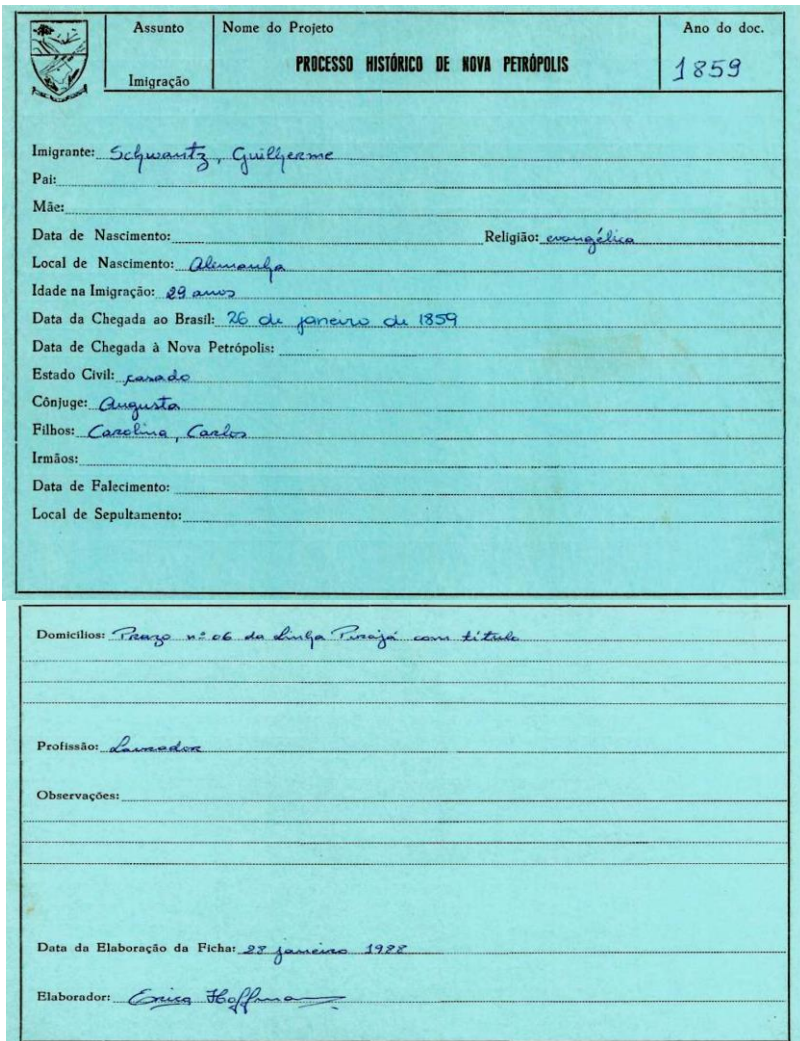 Assunto
Nome do Projeto
Ano do doc.
PROCESSO HISTÓRICO DE NOVA PETRÓPOLIS
1859
Imigração
Imigrante: Schwantz, Guilherme
Pai:
Mãe:
Data de Nascimento: Religião: evangélica
Local de Nascimento: Alemanha
Idade na Imigração: 29 anos
Data da Chegada ao Brasil: 26 de janeiro de 1859
Data de Chegada à Nova Petrópolis:
Estado Civil: casado
Cônjuge: Augusta
Filhos: Carolina, Carlos
Irmãos:
Data de Falecimento:
Local de Sepultamento:
Domicílios: Prazo nº 06 da Linha Pirajá com título
Profissão: Lavrador
Observações:
Data da Elaboração da Ficha: 28 janeiro 1988
Elaborador: Erica Hoffmann